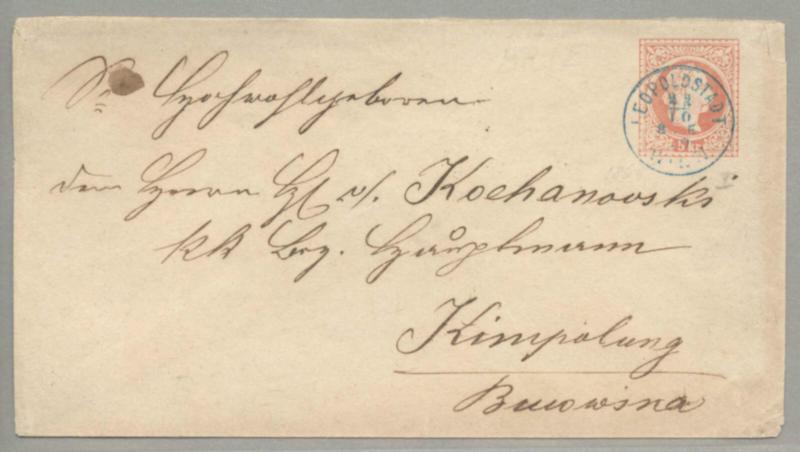 Sr Hochwohlgeboren
dem Herrn H. v. Kochanovski
kk Bez. Hauptmann
Kimpolung
Bucowina
LEOPOLDSTADT
10